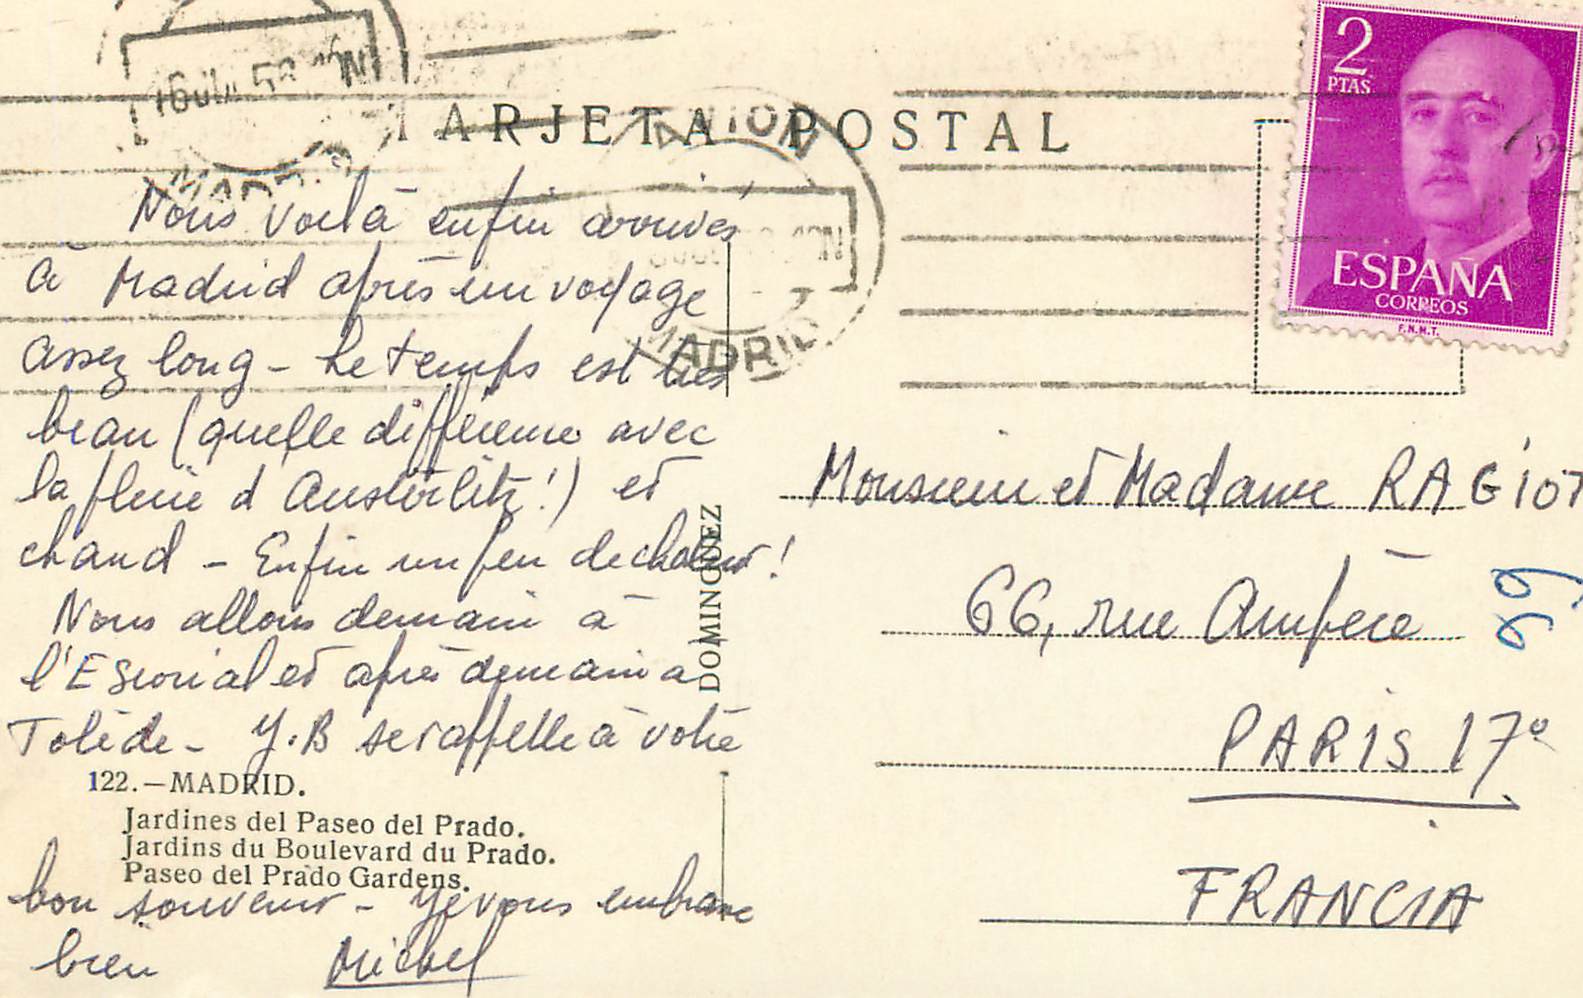 TARJETA POSTAL
AVION
MADRID
2
PTAS
ESPAÑA
CORREOS
F.N.M.T.
Nous voilà enfin arrivés
à Madrid après un voyage
assez long - Le temps est très
beau (quelle différence avec
la pluie d'Austerlitz !) et
chaud - Enfin un peu de chaleur !
Nous allons demain à
l'Escorial et après demain a
Tolède - Y.B se rappelle à votre
bon souvenir - Je vous embrasse
bien Michel
122.—MADRID.
Jardines del Paseo del Prado.
Jardins du Boulevard du Prado.
Paseo del Prado Gardens.
DOMINGUEZ
Monsieur et Madame RAGIOT
66, rue Ampère
PARIS 17e
FRANCIA